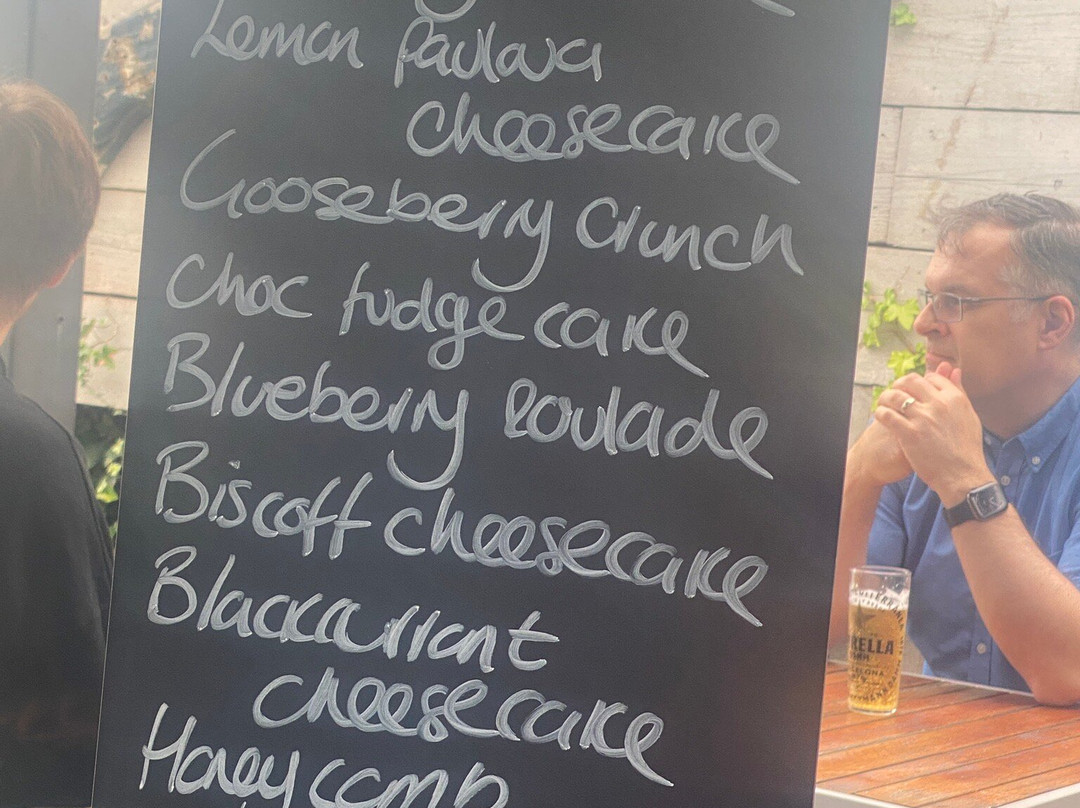 Lemon Pavlova
cheesecake
Gooseberry Crunch
Choc fudge cake
Blueberry Roulade
Biscoff cheesecake
Blackcurrant
cheesecake
Honeycomb
RELLA